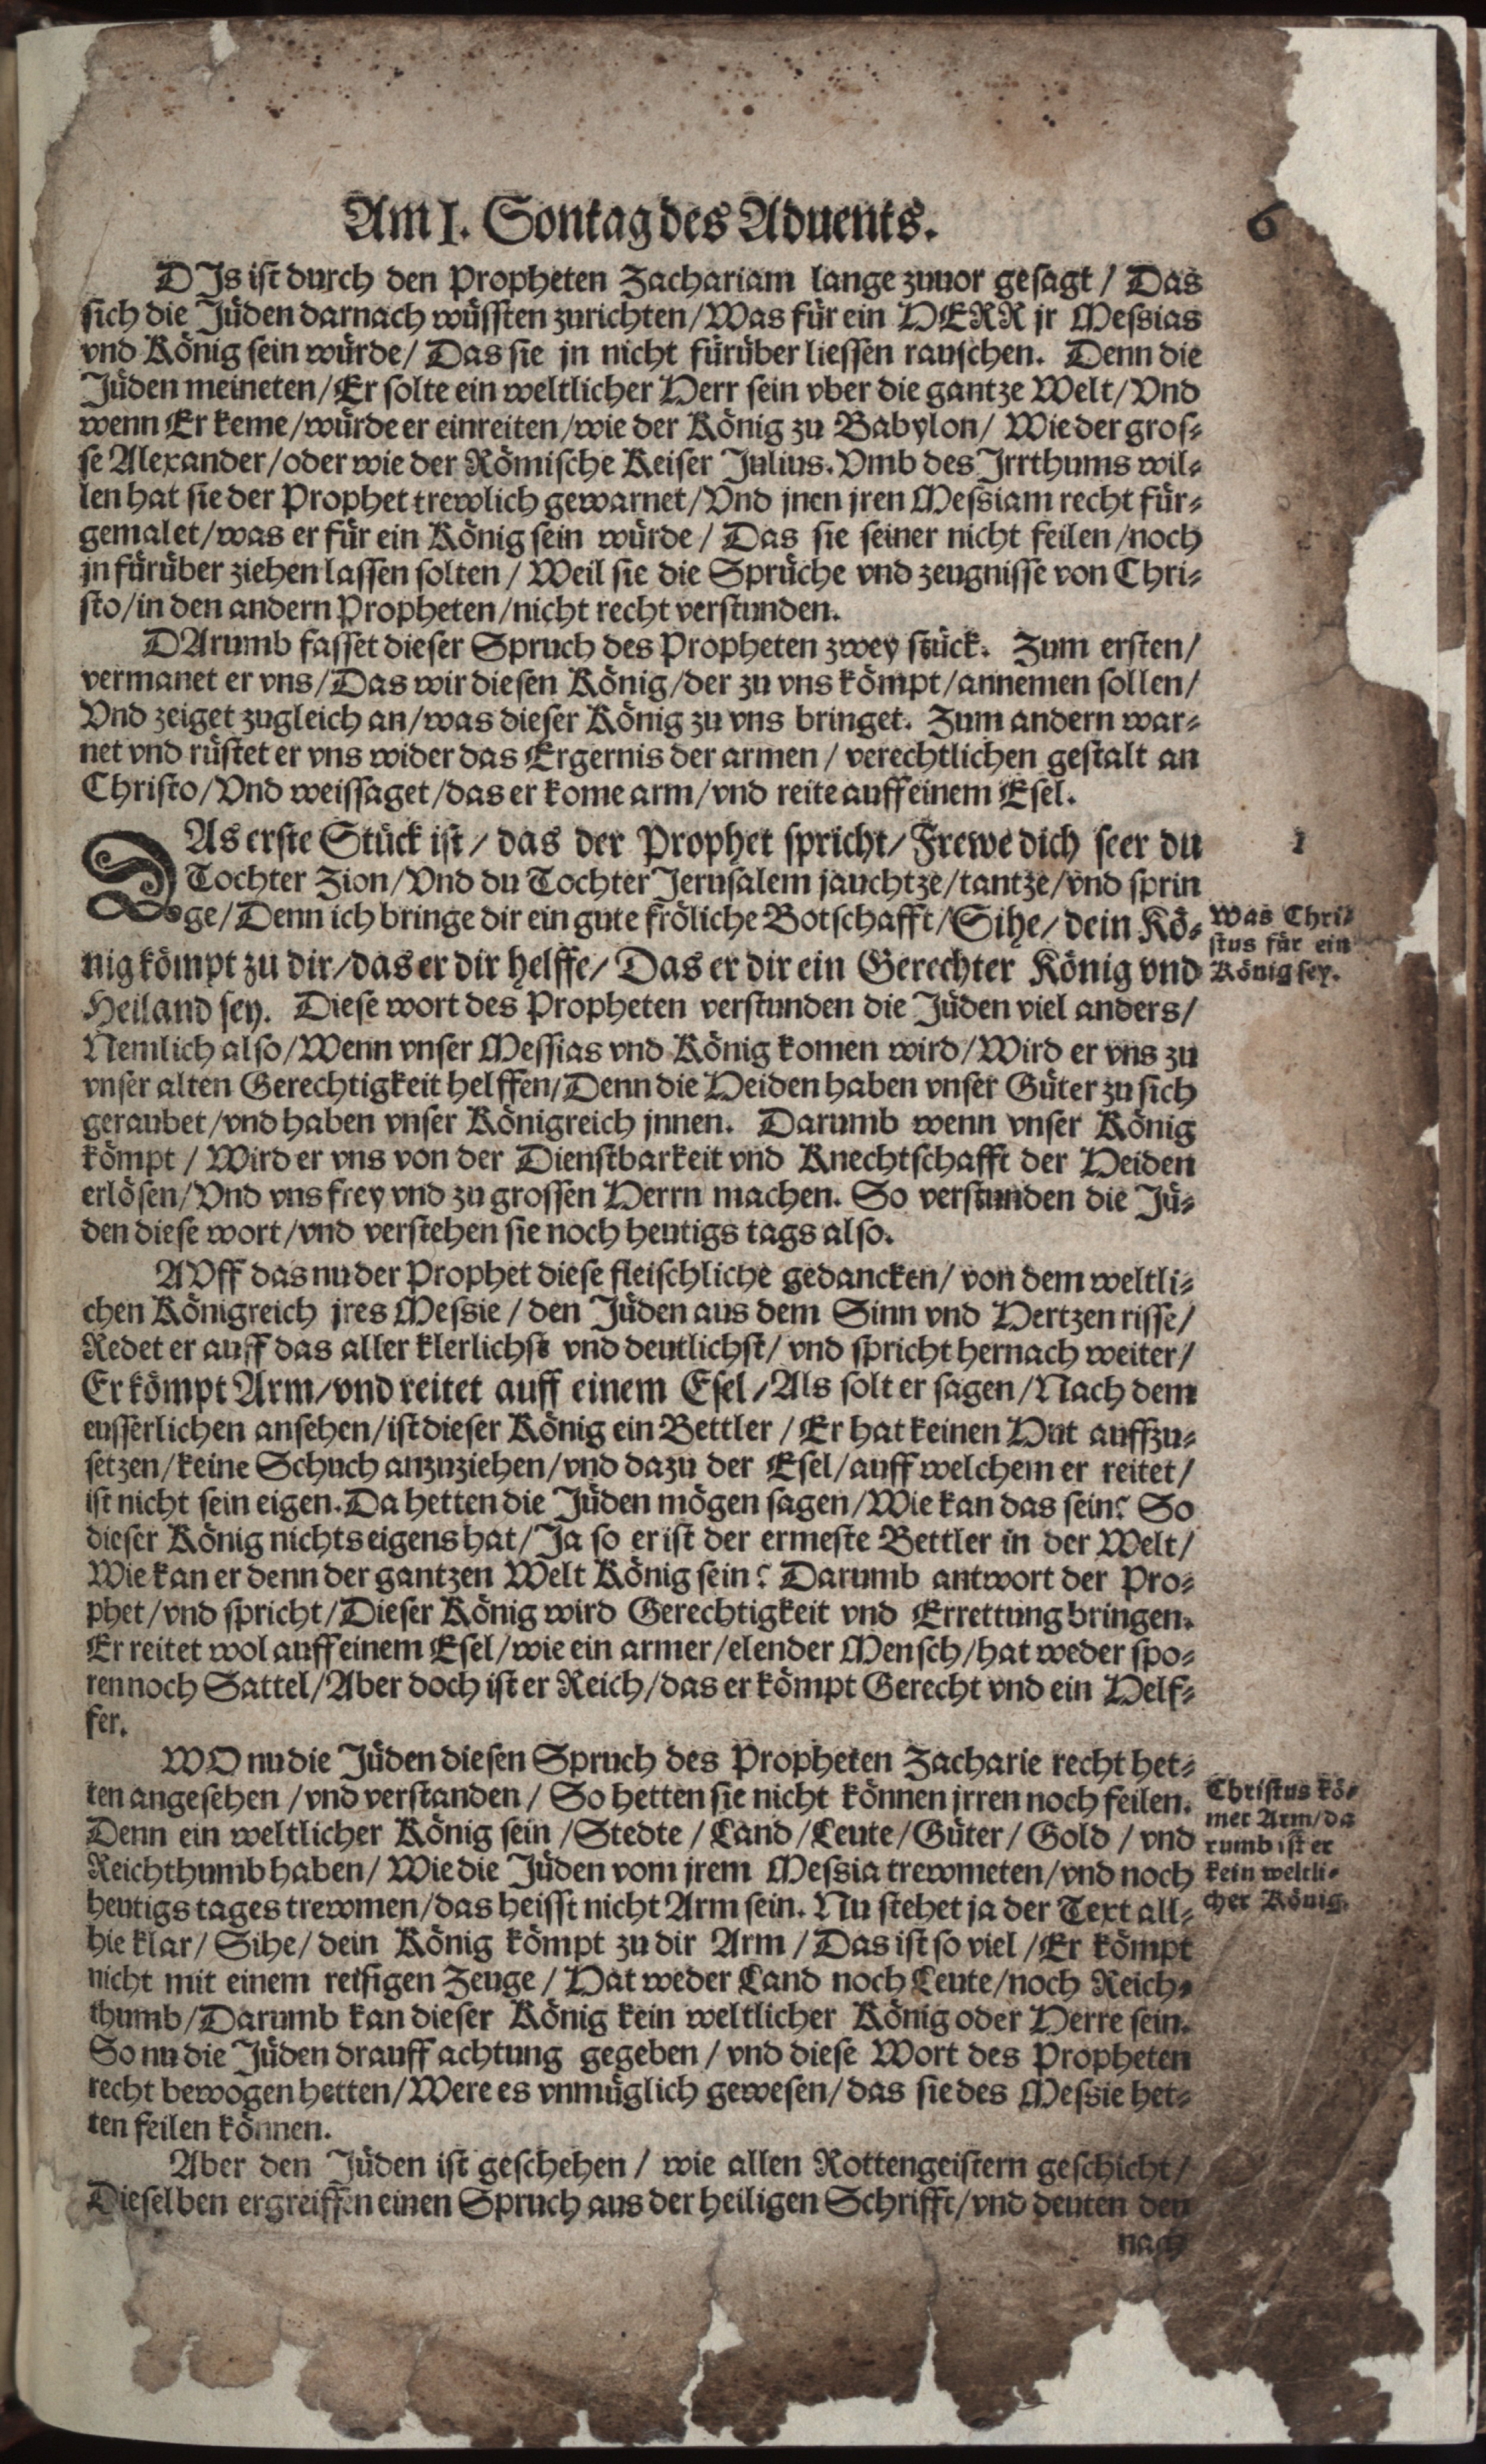 Am I. Sontag des Aduents.
6
DIs ist durch den Propheten Zachariam lange zuuor gesagt / Das
sich die Jüden darnach wüssten zurichten / Was für ein HERR jr Messias
vnd König sein würde / Das sie jn nicht fürüber liessen rauschen. Denn die
Jüden meineten / Er solte ein weltlicher Herr sein vber die gantze Welt / Vnd
wenn Er keme / würde er einreiten / wie der König zu Babylon / Wie der gros-
se Alexander / oder wie der Römische Keiser Julius. Vmb des Jrrthums wil-
len hat sie der Prophet trewlich gewarnet / Vnd jnen jren Messiam recht für-
gemalet / was er für ein König sein würde / Das sie seiner nicht feilen / noch
jn fürüber ziehen lassen solten / Weil sie die Sprüche vnd zeugnisse von Chri-
sto / in den andern Propheten / nicht recht verstunden.
DArumb fasset dieser Spruch des Propheten zwey stück. Zum ersten /
vermanet er vns / Das wir diesen König / der zu vns kömpt / annemen sollen /
Vnd zeiget zugleich an / was dieser König zu vns bringet. Zum andern war-
net vnd rüstet er vns wider das Ergernis der armen / verechtlichen gestalt an
Christo / Vnd weissaget / das er kome arm / vnd reite auff einem Esel.
DAs erste Stück ist / das der Prophet spricht / Frewe dich seer du
1
Tochter Zion / Vnd du Tochter Jerusalem jauchtze / tantze / vnd sprin
ge / Denn ich bringe dir ein gute fröliche Botschafft / Sihe / dein Kö-
nig kömpt zu dir / das er dir helffe / Das er dir ein Gerechter König vnd
Was Chri-
stus für ein
König sey.
Heiland sey. Diese wort des Propheten verstunden die Jüden viel anders /
Nemlich also / Wenn vnser Messias vnd König komen wird / Wird er vns zu
vnser alten Gerechtigkeit helffen / Denn die Heiden haben vnser Güter zu sich
geraubet / vnd haben vnser Königreich jnnen. Darumb wenn vnser König
kömpt / Wird er vns von der Dienstbarkeit vnd Knechtschafft der Heiden
erlösen / Vnd vns frey vnd zu grossen Herrn machen. So verstunden die Jü-
den diese wort / vnd verstehen sie noch heutigs tags also.
AVff das nu der Prophet diese fleischliche gedancken / von dem weltli-
chen Königreich jres Messie / den Jüden aus dem Sinn vnd Hertzen risse /
Redet er auff das aller klerlichst vnd deutlichst / vnd spricht hernach weiter /
Er kömpt Arm / vnd reitet auff einem Esel / Als solt er sagen / Nach dem
eusserlichen ansehen / ist dieser König ein Bettler / Er hat keinen Hut auffzu-
setzen / keine Schuch anzuziehen / vnd dazu der Esel / auff welchem er reitet /
ist nicht sein eigen. Da hetten die Jüden mögen sagen / Wie kan das sein? So
dieser König nichts eigens hat / Ja so er ist der ermeste Bettler in der Welt /
Wie kan er denn der gantzen Welt König sein? Darumb antwort der Pro-
phet / vnd spricht / Dieser König wird Gerechtigkeit vnd Errettung bringen.
Er reitet wol auff einem Esel / wie ein armer / elender Mensch / hat weder spo-
ren noch Sattel / Aber doch ist er Reich / das er kömpt Gerecht vnd ein Helf-
fer.
WO nu die Jüden diesen Spruch des Propheten Zacharie recht het-
ten angesehen / vnd verstanden / So hetten sie nicht können jrren noch feilen.
Denn ein weltlicher König sein / Stedte / Land / Leute / Güter / Gold / vnd
Reichthumb haben / Wie die Jüden vom jrem Messia trewmeten / vnd noch
heutigs tages trewmen / das heisst nicht Arm sein. Nu stehet ja der Text all-
Christus kö-
met Arm / da
rumb ist er
kein weltli-
cher König.
hie klar / Sihe / dein König kömpt zu dir Arm / Das ist so viel / Er kömpt
nicht mit einem reisigen Zeuge / Hat weder Land noch Leute / noch Reich-
thumb / Darumb kan dieser König kein weltlicher König oder Herre sein.
So nu die Jüden drauff achtung gegeben / vnd diese Wort des Propheten
recht bewogen hetten / Were es vnmüglich gewesen / das sie des Messie het-
ten feilen können.
Aber den Jüden ist geschehen / wie allen Rottengeistern geschicht /
Dieselben ergreiffen einen Spruch aus der heiligen Schrifft / vnd deuten den
nach